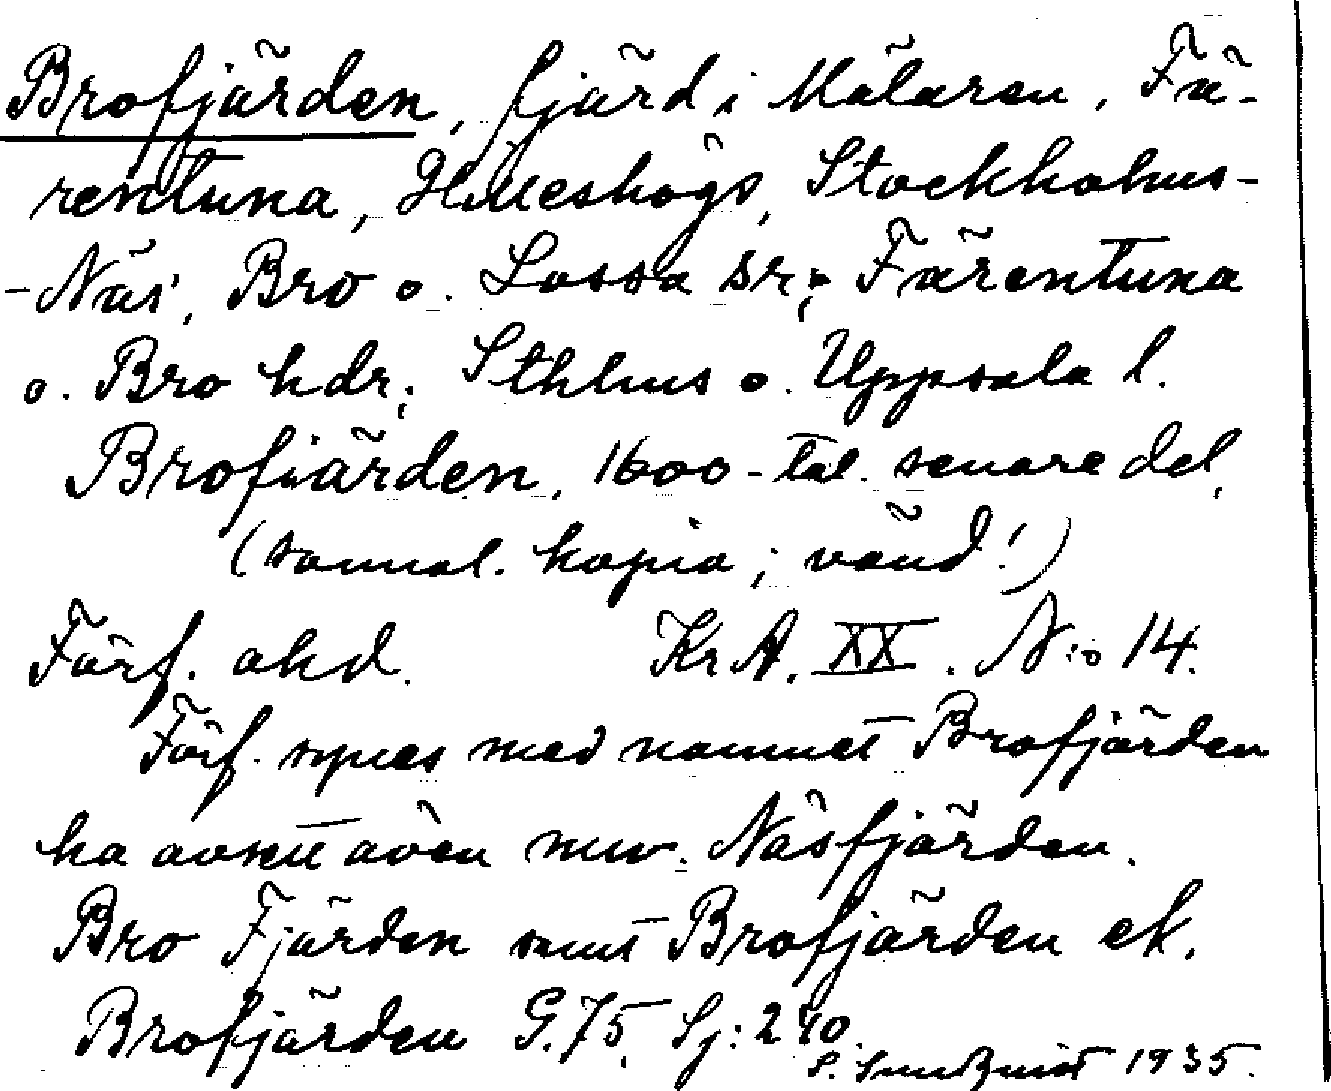 Brofjärden, fjärd i Mälaren, Fä-
rentuna, Hilleshögs, Stockholms-
-Näs, Bro o. Lossa snr; Färentuna
o. Bro hdr; Sthlms o. Uppsala l.
Brofiärden, 1600-tal. senare del,
(sannol. kopia; vänd!)
Förf. okd. KrA. XX. N:o 14.
Förf. synes med namnet Brofjärden
ha avsett även nuv. Näsfjärden.
Bro Fjärden samt Brofjärden ek.
Brofjärden G.75, Sj: 240.
S. 1935.